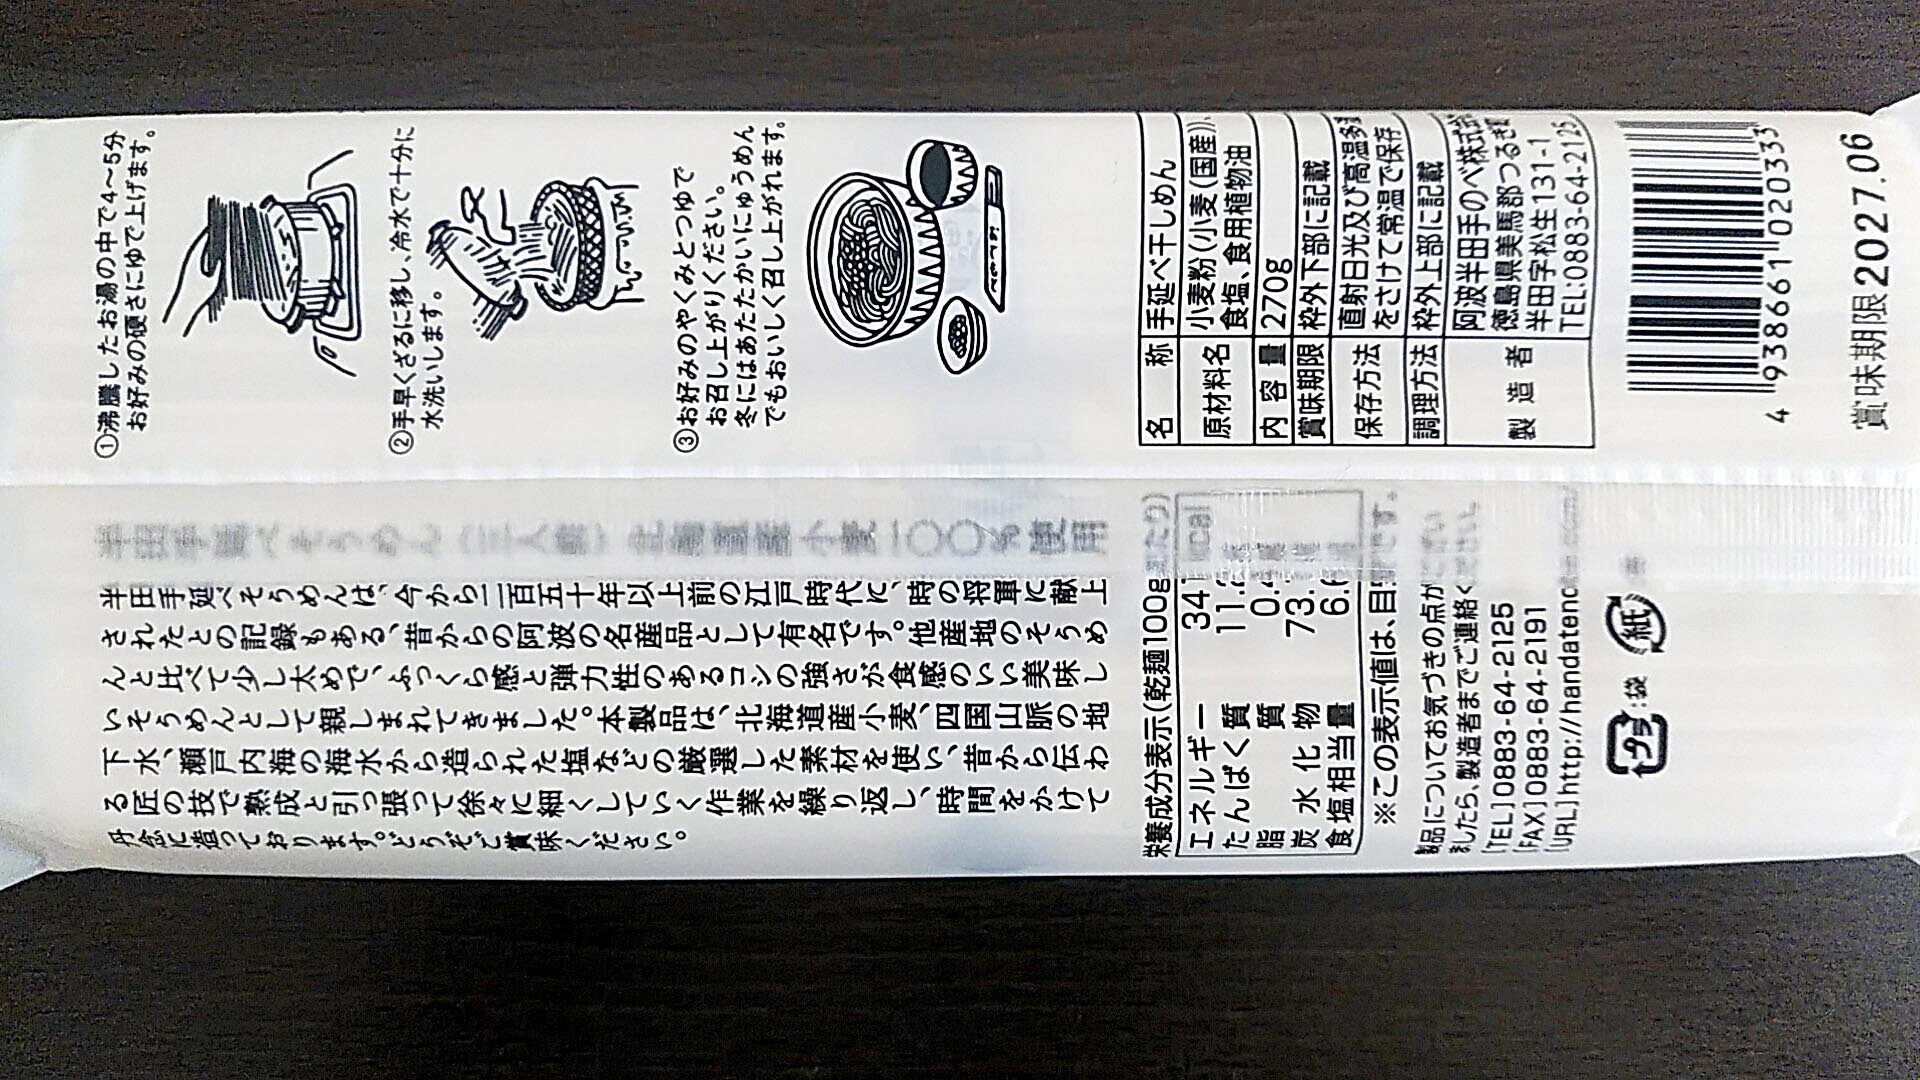 ①沸騰したお湯の中で4〜5分
お好みの硬さにゆで上げます。
②手早くざるに移し、冷水で十分に
水洗いします。
③お好みのやくみとつゆで
お召し上がりください。
冬にはあたたかいにゅうめん
でもおいしく召し上がれます。
名 称 手延べ干しめん
原材料名 小麦粉(小麦(国産))、
食塩、食用植物油
内容量 270g
賞味期限 枠外下部に記載
保存方法 直射日光及び高温多
をさけて常温で保存
調理方法 枠外上部に記載
製造者 阿波半田手のべ株式
徳島県美馬郡つるぎ
半田字松生131-1
TEL:0883-64-2125
4 938661 020333
賞味期限2027.06
半田手延べそうめん(三人前) 北海道産小麦一〇〇%使用
半田手延べそうめんは、今から二百五十年以上前の江戸時代に、時の将軍に献上
されたとの記録もある、昔からの阿波の名産品として有名です。他産地のそうめ
んと比べて少し太めで、ふっくら感と弾力性のあるコシの強さが食感のいい美味し
いそうめんとして親しまれてきました。本製品は、北海道産小麦、四国山脈の地
下水、瀬戸内海の海水から造られた塩などの厳選した素材を使い、昔から伝わ
る匠の技で熟成と引っ張って徐々に細くしていく作業を繰り返し、時間をかけて
丹念に造っております。どうぞご賞味ください。
栄養成分表示(乾麺100g当たり)
エネルギー 34 kcal
たんぱく質 11.
脂質 0.
炭水化物 73.
食塩相当量 6.
※この表示値は、目安です。
製品についてお気づきの点がござい
ましたら、製造者までご連絡ください。
[TEL]0883-64-2125
[FAX]0883-64-2191
[URL]http://handatenobe.com/
プラ :袋 紙